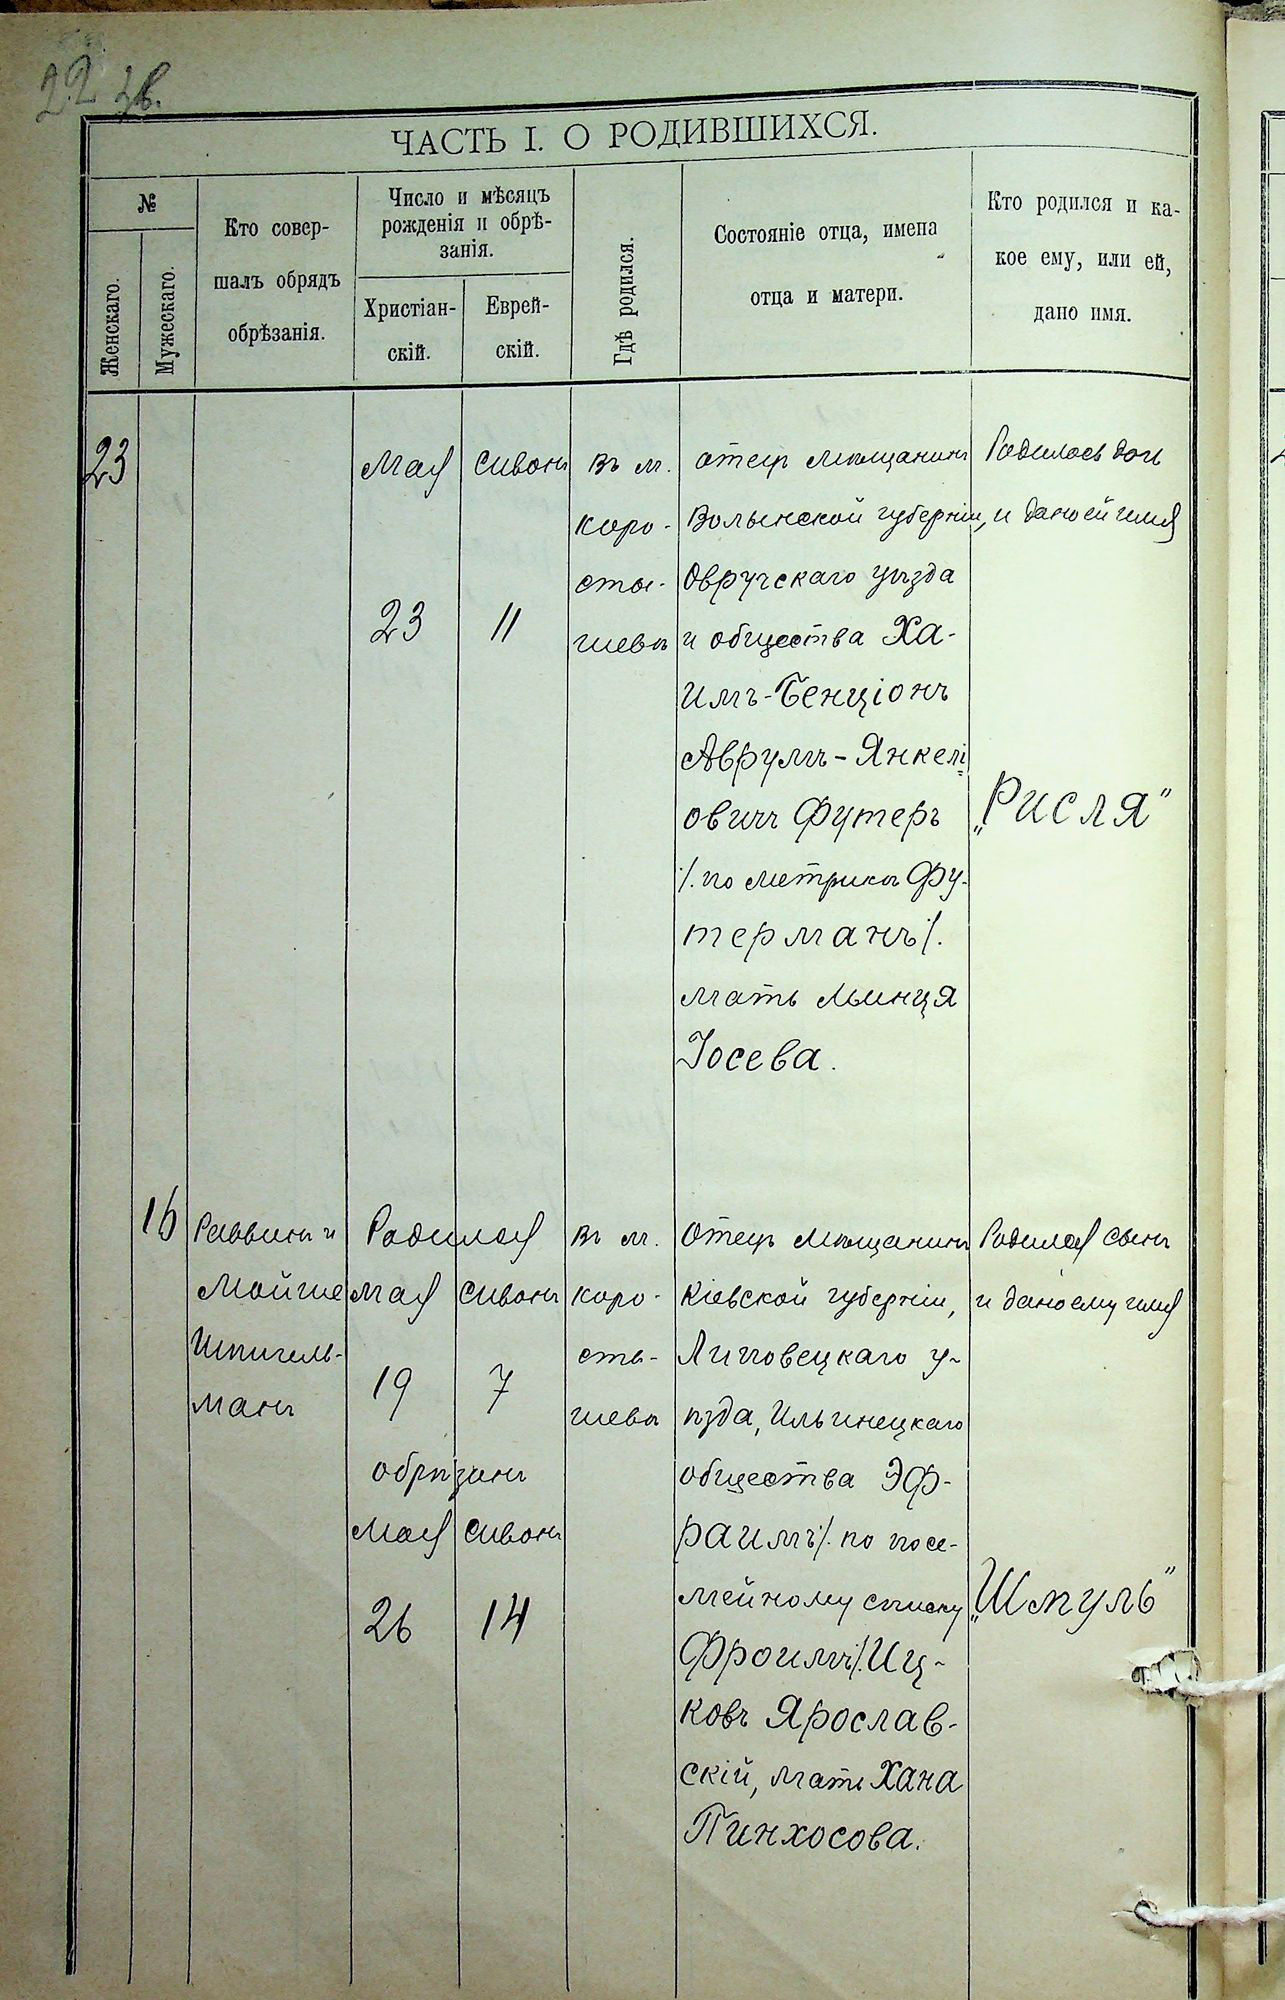 22 зв.
ЧАСТЬ I. О РОДИВШИХСЯ.
№
Женскаго.
Мужескаго.
Кто совер-
шалъ обрядъ
обрѣзанія.
Число и мѣсяцъ
рожденія и обрѣ-
занія.
Христіан-
скій.
Еврей-
скій.
Гдѣ родился.
Состояніе отца, имена
отца и матери.
Кто родился и ка-
кое ему, или ей,
дано имя.
23
Мая
23
Сивонъ
11
Въ м.
Коро-
сты-
шевѣ
Отецъ мѣщанинъ
Волынской губерніи,
Овручскаго уѣзда
и общества Ха-
имъ-Бенціонъ
Аврумъ-Янкелі
овичъ Футеръ
/. по метрикѣ Фу-
терманъ/.
мать Минця
Іосева.
Родилась дочь
и дано ей имя
„Рисля"
16
Раввинъ и
Мойше
Шпигель-
манъ
Родился
Мая Сивонъ
19 7
обрѣзанъ
Мая Сивонъ
26 14
Въ м.
Коро-
сты-
шевѣ
Отецъ мѣщанинъ
Кіевской губерніи,
Липовецкаго у-
ѣзда, Ильинецкаго
общества Эф-
раимъ/. по посе-
мейному списку
Фроимъ/. Иц-
ковъ Ярослав-
скій, мать Хана
Пинхосова.
Родился сынъ
и дано ему имя
„Шмуль"